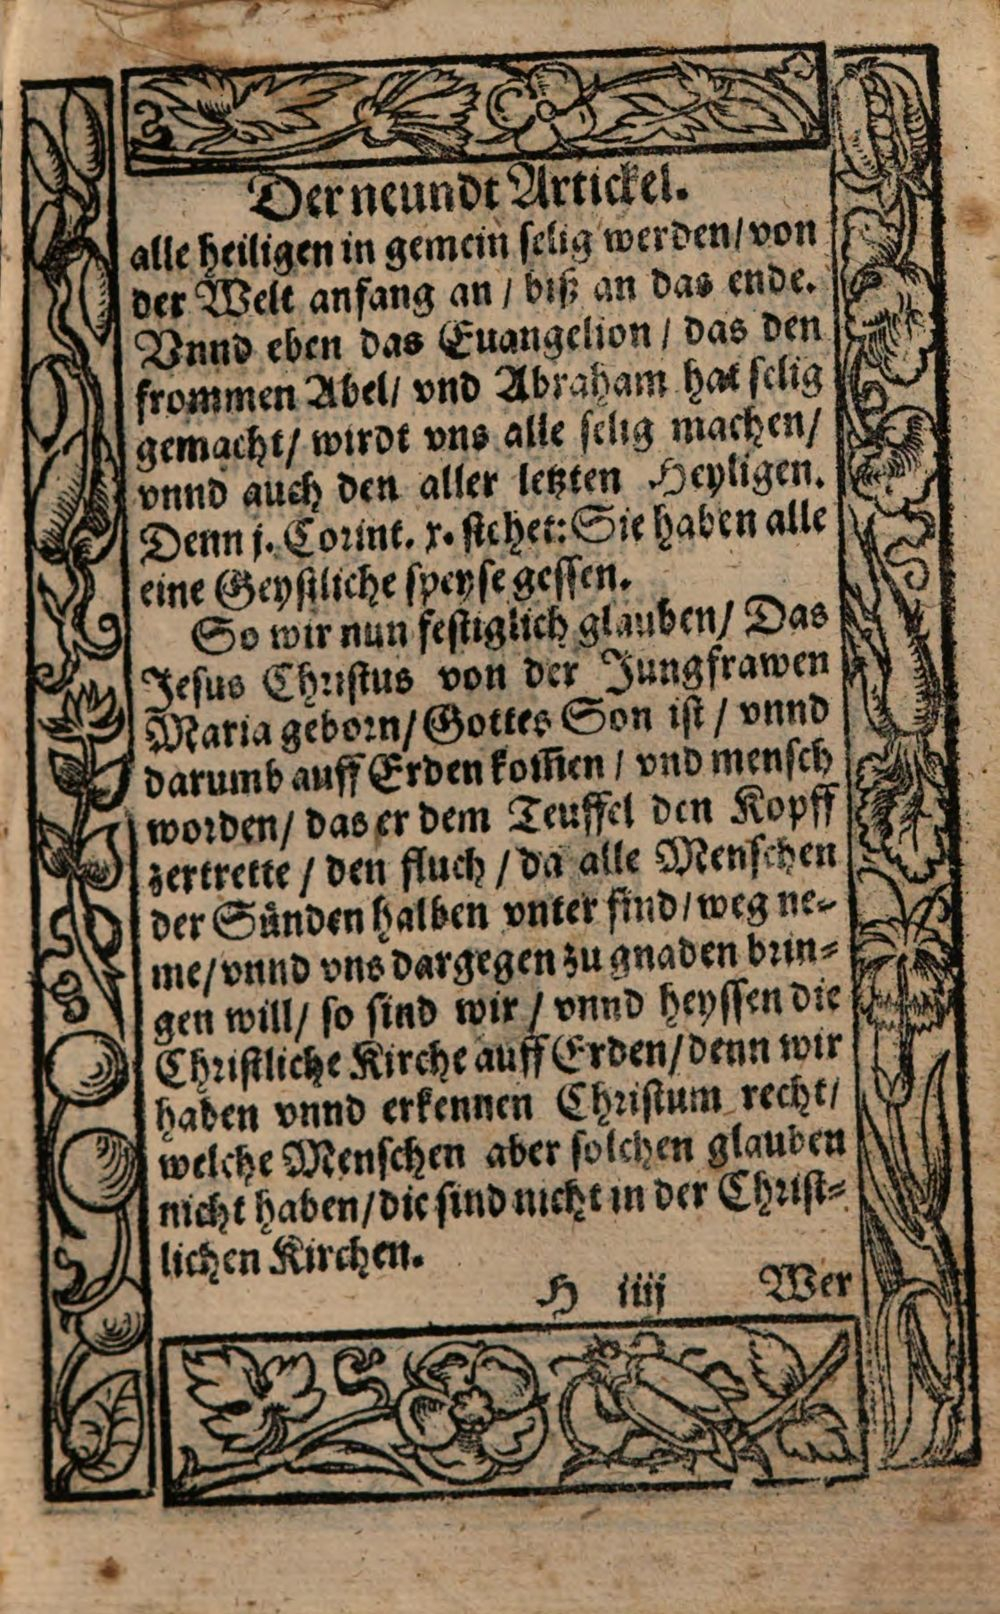 Der neundt Artickel.
alle heiligen in gemein selig werden/ von
der Welt anfang an / biß an das ende.
Vnnd eben das Euangelion / das den
frommen Abel/ vnd Abraham hat selig
gemacht/ wirdt vns alle selig machen/
vnnd auch den aller letzten Heyligen.
Denn j. Corint. x. stehet: Sie haben alle
eine Geystliche speyse gessen.
So wir nun festiglich glauben/ Das
Jesus Christus von der Jungfrawen
Maria geborn/ Gottes Son ist / vnnd
darumb auff Erden kom̃en / vnd mensch
worden/ das er dem Teuffel den Kopff
zertrette / den fluch / da alle Menschen
der Sünden halben vnter sind/ weg ne-
me/ vnnd vns dargegen zu gnaden brin-
gen will/ so sind wir / vnnd heyssen die
Christliche Kirche auff Erden/ denn wir
haben vnnd erkennen Christum recht/
welche Menschen aber solchen glauben
nicht haben/ die sind nicht in der Christ-
lichen Kirchen.
H iiij Wer